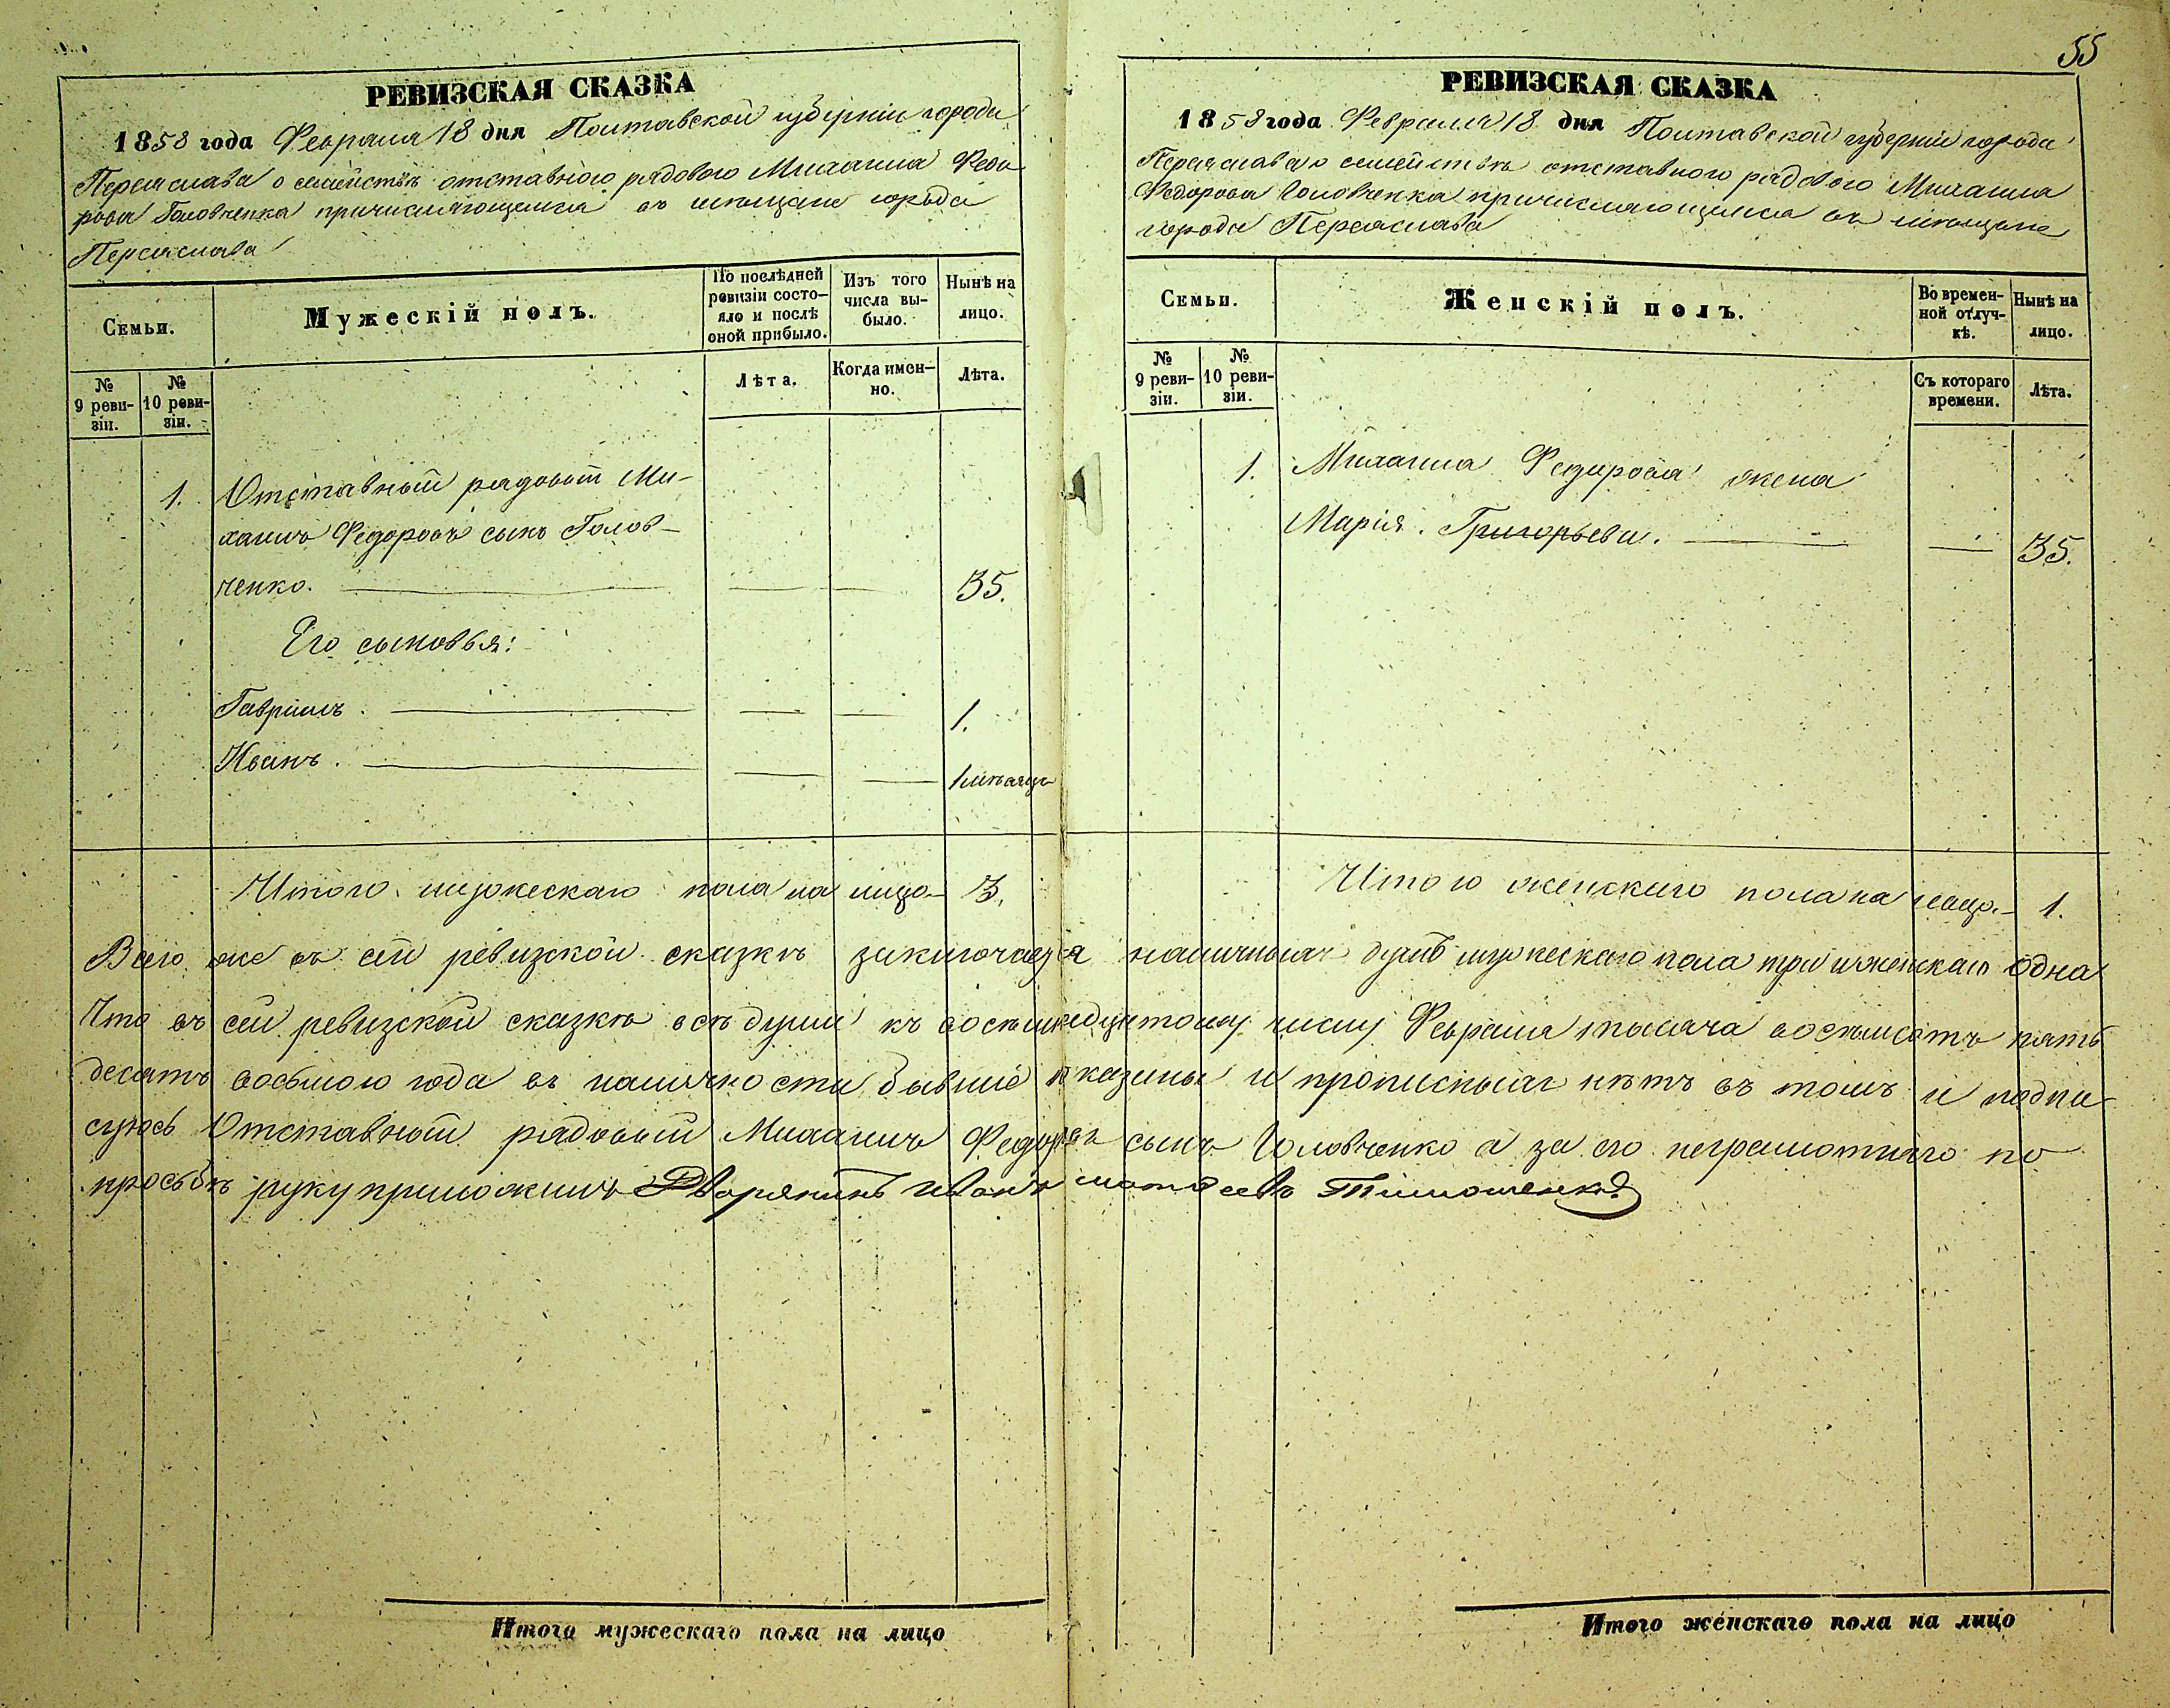 РЕВИЗСКАЯ СКАЗКА
1858 года Февраля 18 дня Полтавской губерніи города
Переяслава о семействѣ отставного рядового Михаила Федо
рова Головченка причисляющемся въ мѣщане города
Переяслава
Семьи.
Мужескій полъ.
По послѣдней
ревизіи состо-
яло и послѣ
оной прибыло.
Изъ того
числа вы-
было.
Нынѣ на
лицо.
№
9 реви-
зіи.
№
10 реви-
зіи.
Лѣта.
Когда имен-
но.
Лѣта.
1. Отставный рядовый Ми-
хаилъ Федоровъ сынъ Голов-
ченко. 35.
Его сыновья:
Гавріилъ. 1.
Иванъ. 1 мѣсяца
Итого мужескаго пола на лицо 3.
55
РЕВИЗСКАЯ СКАЗКА
1858 года Февраля 18 дня Полтавской губерніи города
Переяслава о семействѣ отставного рядового Михаила
Федорова Головченка причисляющемся въ мѣщане
города Переяслава
Семьи.
Женскій полъ.
Во времен-
ной отлуч-
кѣ.
Нынѣ на
лицо.
№
9 реви-
зіи.
№
10 реви-
зіи.
Съ котораго
времени.
Лѣта.
1. Михаила Федорова жена
Марія Григорьева. 35.
Итого женскаго пола на лицо 1.
Всего же въ сей ревизкой сказкѣ заключается наличныхъ душъ мужескаго пола три и женскаго одна
Что въ сей ревизской сказкѣ всѣ души къ восемнадцатому числу Февраля тысяча восемьсотъ пять
десятъ восьмого года въ наличности бывшіе показаны и прописныхъ нѣтъ въ томъ и подпи
суюсь Отставный рядовый Михаилъ Федоровъ сынъ Головченко а за его неграмотного по
просьбѣ руку приложилъ Дворянинъ Иванъ Матвеевъ Тимошенко
Итого мужескаго пола на лицо
Итого женскаго пола на лицо